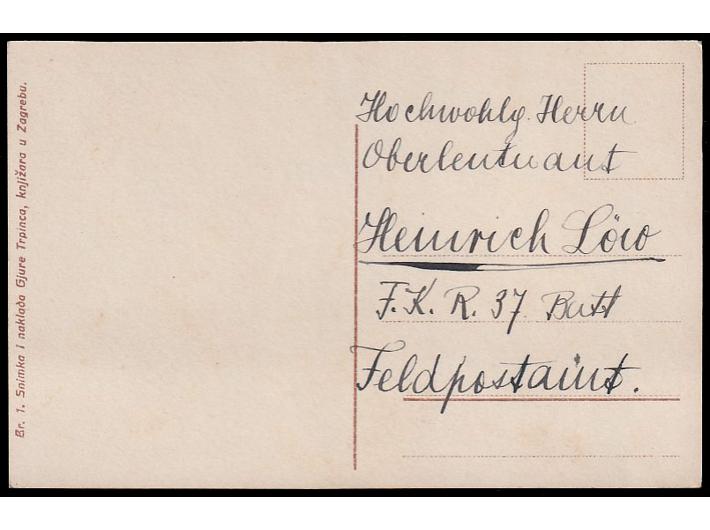 Br. 1. Snimka i naklada Gjure Trpinca, knjižara u Zagrebu.
Hochwohlg. Herrn
Oberlentnant
Heinrich Löw
F. K. R. 37 Batt
Feldpostamt.